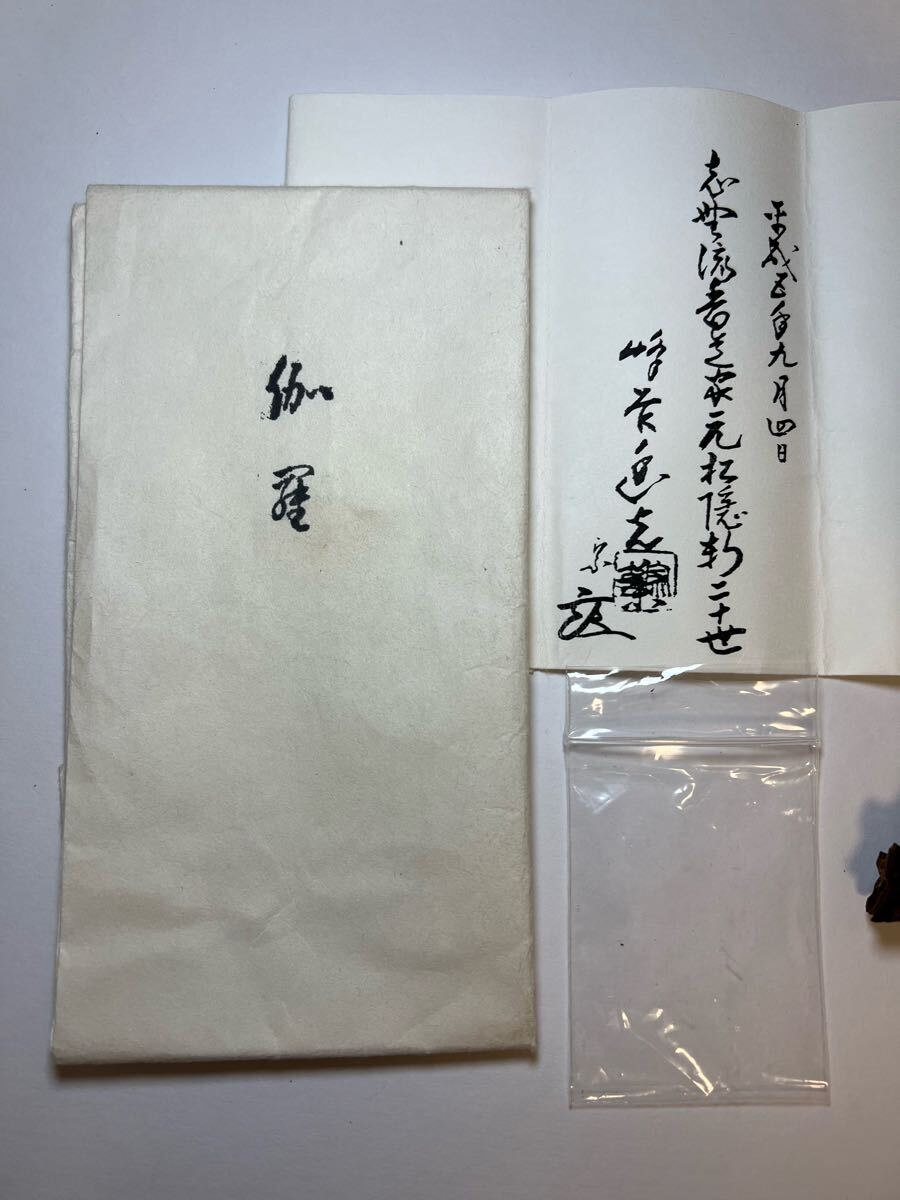 伽羅
平成五年九月四日
志野流香道家元松隠軒二十世
蜂谷幽光斎
宗玄